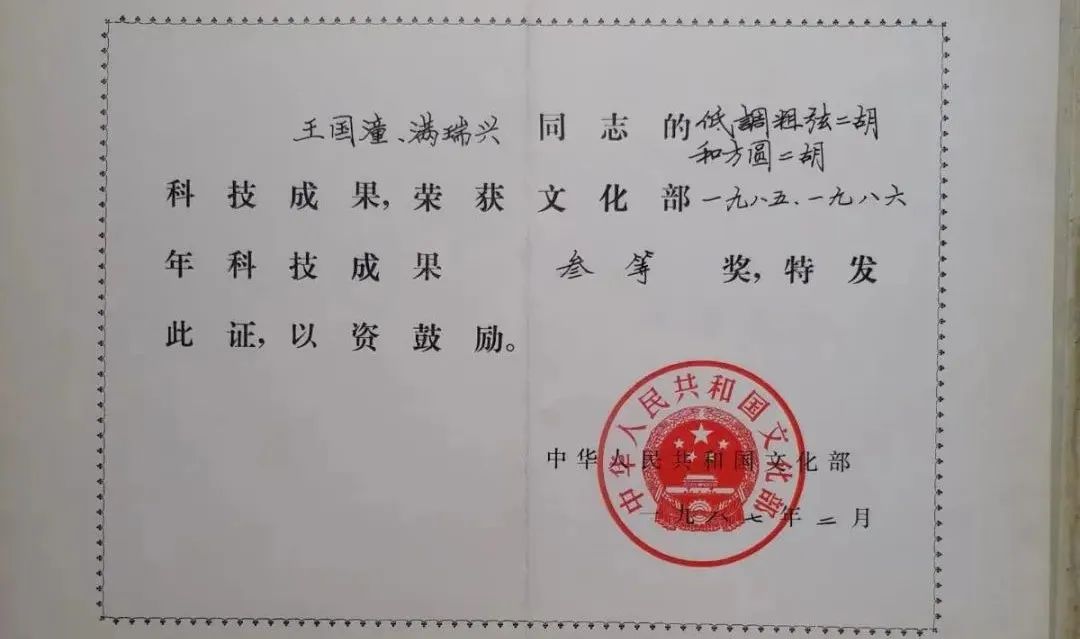 王国潼、满瑞兴同志的低調粗弦二胡
和方圓二胡
科技成果,荣获文化部一九八五、一九八六
年科技成果叁等奖,特发
此证,以资鼓励。
中华人民共和国文化部
中华人民共和国文化部
一九八七年二月